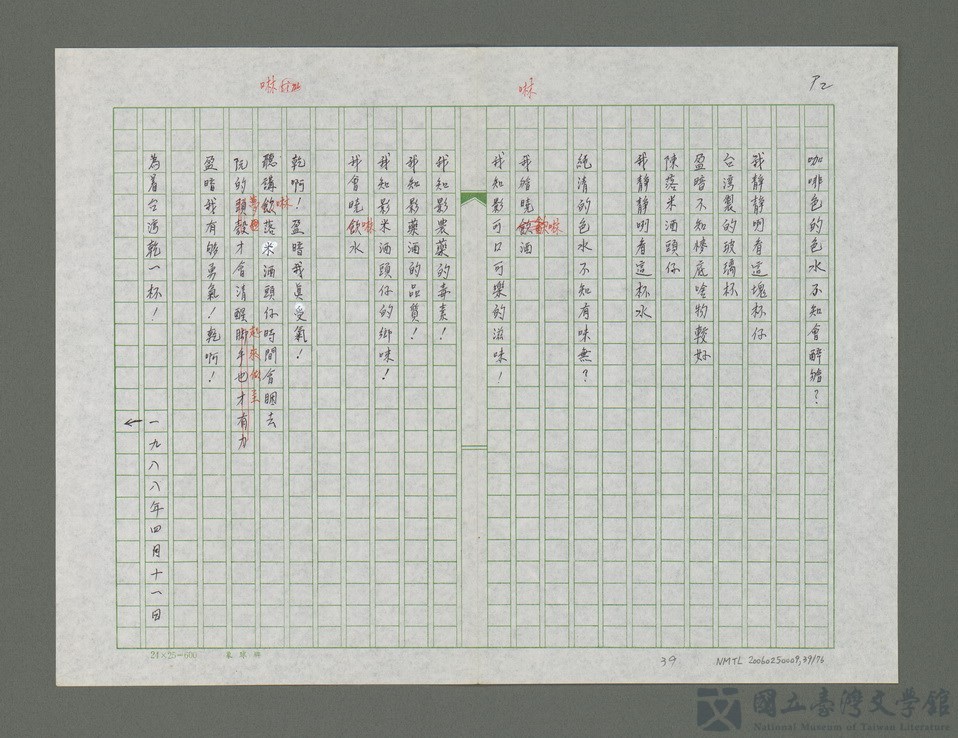 P2
咖啡色的色水不知會醉膾?
我靜靜啊看這塊杯仔
台湾製的玻璃杯
盈暗不知檫底啥物較好
陳落米酒頭仔
我靜靜啊看這杯水
純清的色水不知有味無?
我膾曉飲酒
啉
我知影可口可樂的滋味!
我知影農藥的毒素!
我知影藥酒的品質!
我知影米酒頭仔的鄉味!
我會曉飲水
啉
啉
乾啊!盈暗我真受氣!
聽講飲落米酒頭仔時間會睏去
啉
阮的頭殼才會清醒脚手也才有力
起來做主
盈暗我有夠勇氣!乾啊!
為着台湾乾一杯!
一九八八年四月十一日
24×25=600
39
NMTL 20060250009,39/76
國立臺灣文學館
National Museum of Taiwan Literature